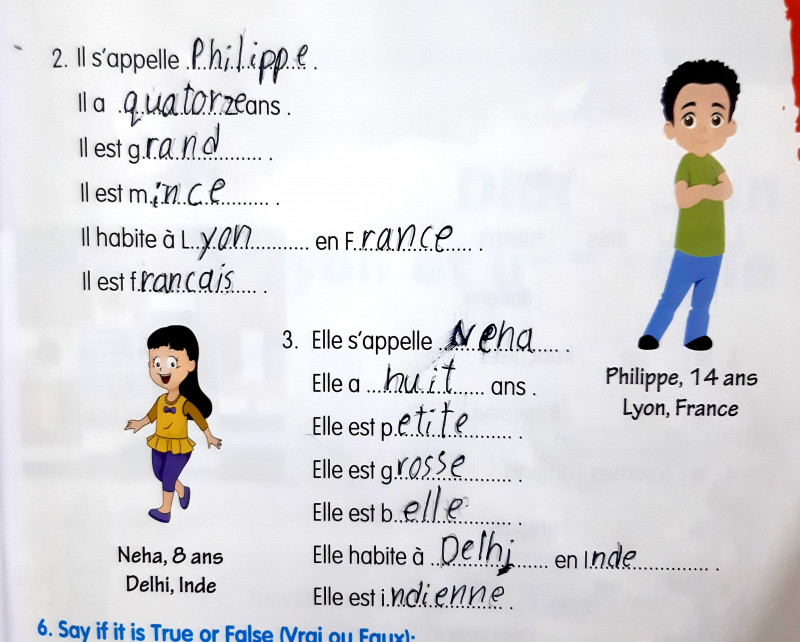 2. Il s'appelle Philippe.
Il a quatorze ans.
Il est grand.
Il est mince.
Il habite à Lyon en France.
Il est francais.
Philippe, 14 ans
Lyon, France
3. Elle s'appelle Neha.
Elle a huit ans.
Elle est petite.
Elle est grosse.
Elle est belle.
Elle habite à Delhi en Inde.
Elle est indienne.
Neha, 8 ans
Delhi, Inde
6. Say if it is True or False (Vrai ou Faux):